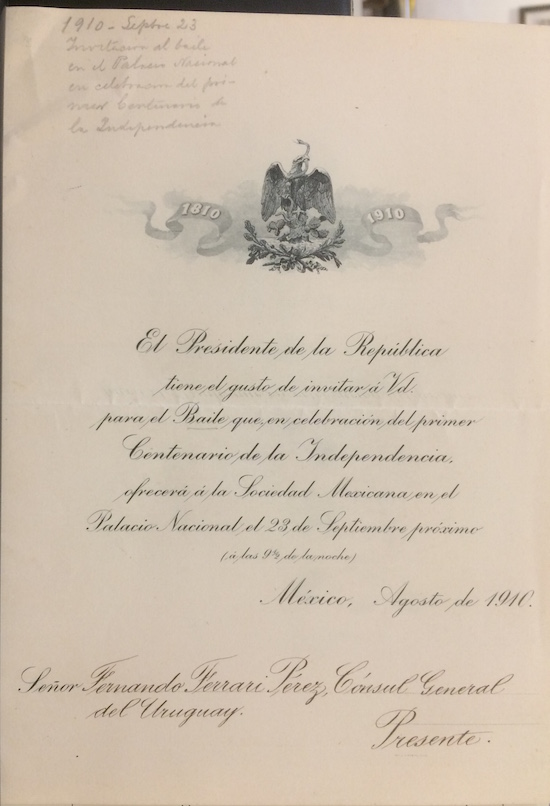 1910 - Septbre 23
Invitación al baile
en el Palacio Nacional
en celebracion del pri-
mer Centenario de
la Independencia
1810
1910
El Presidente de la República
tiene el gusto de invitar á Vd.
para el Baile que, en celebración del primer
Centenario de la Independencia,
ofrecerá á la Sociedad Mexicana en el
Palacio Nacional el 23 de Septiembre próximo
(á las 9½ de la noche)
México, Agosto de 1910.
Señor Fernando Ferrari Pérez, Cónsul General
del Uruguay.
Presente.